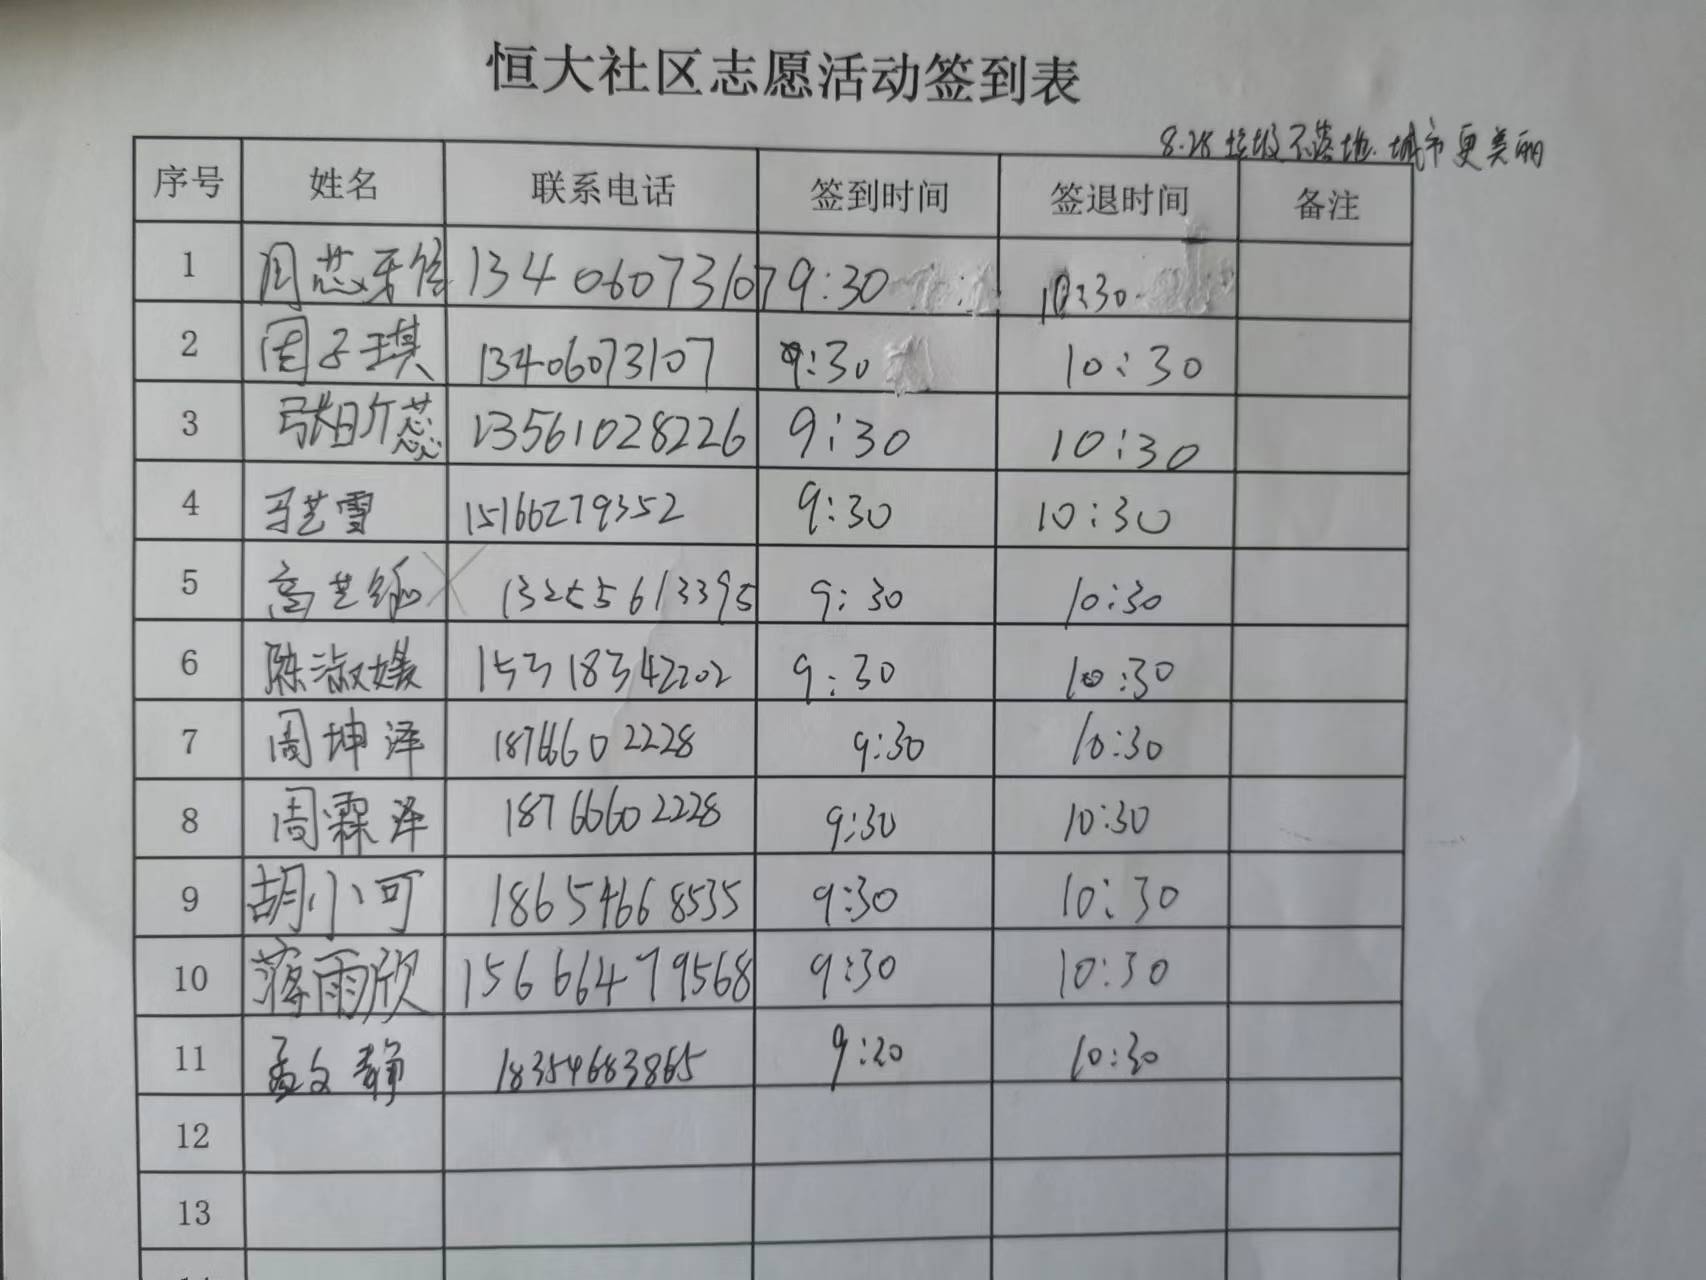 恒大社区志愿活动签到表
8.28 垃圾不落地.城市更美丽
序号 姓名 联系电话 签到时间 签退时间 备注
1 周芯 13406073107 9:30 10:30
2 周子琪 13406073107 9:30 10:30
3 13561028226 9:30 10:30
4 马艺雪 15166279352 9:30 10:30
5 高艺 13255613395 9:30 10:30
6 陈淑媛 15318342202 9:30 10:30
7 周坤泽 18766602228 9:30 10:30
8 周霖泽 18766602228 9:30 10:30
9 胡小可 18654668535 9:30 10:30
10 蒋雨欣 15666479568 9:30 10:30
11 孟文静 18354683865 9:20 10:30
12
13